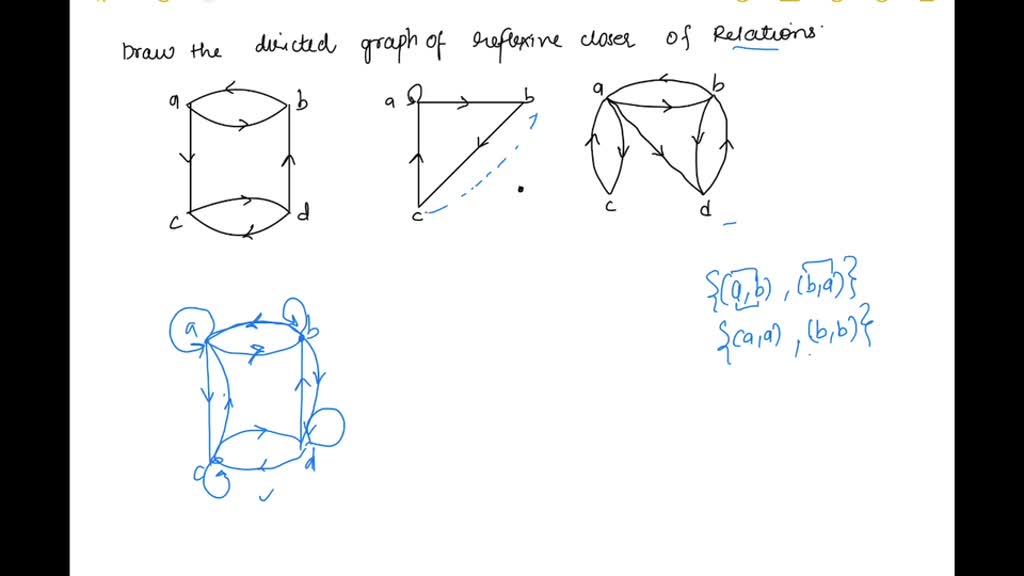 Draw the directed graph of reflexine closer of Relations.
a b
c d
a b
c
a b
c d
{(a,b), (b,a)}
{(a,a), (b,b)}
a b
c d